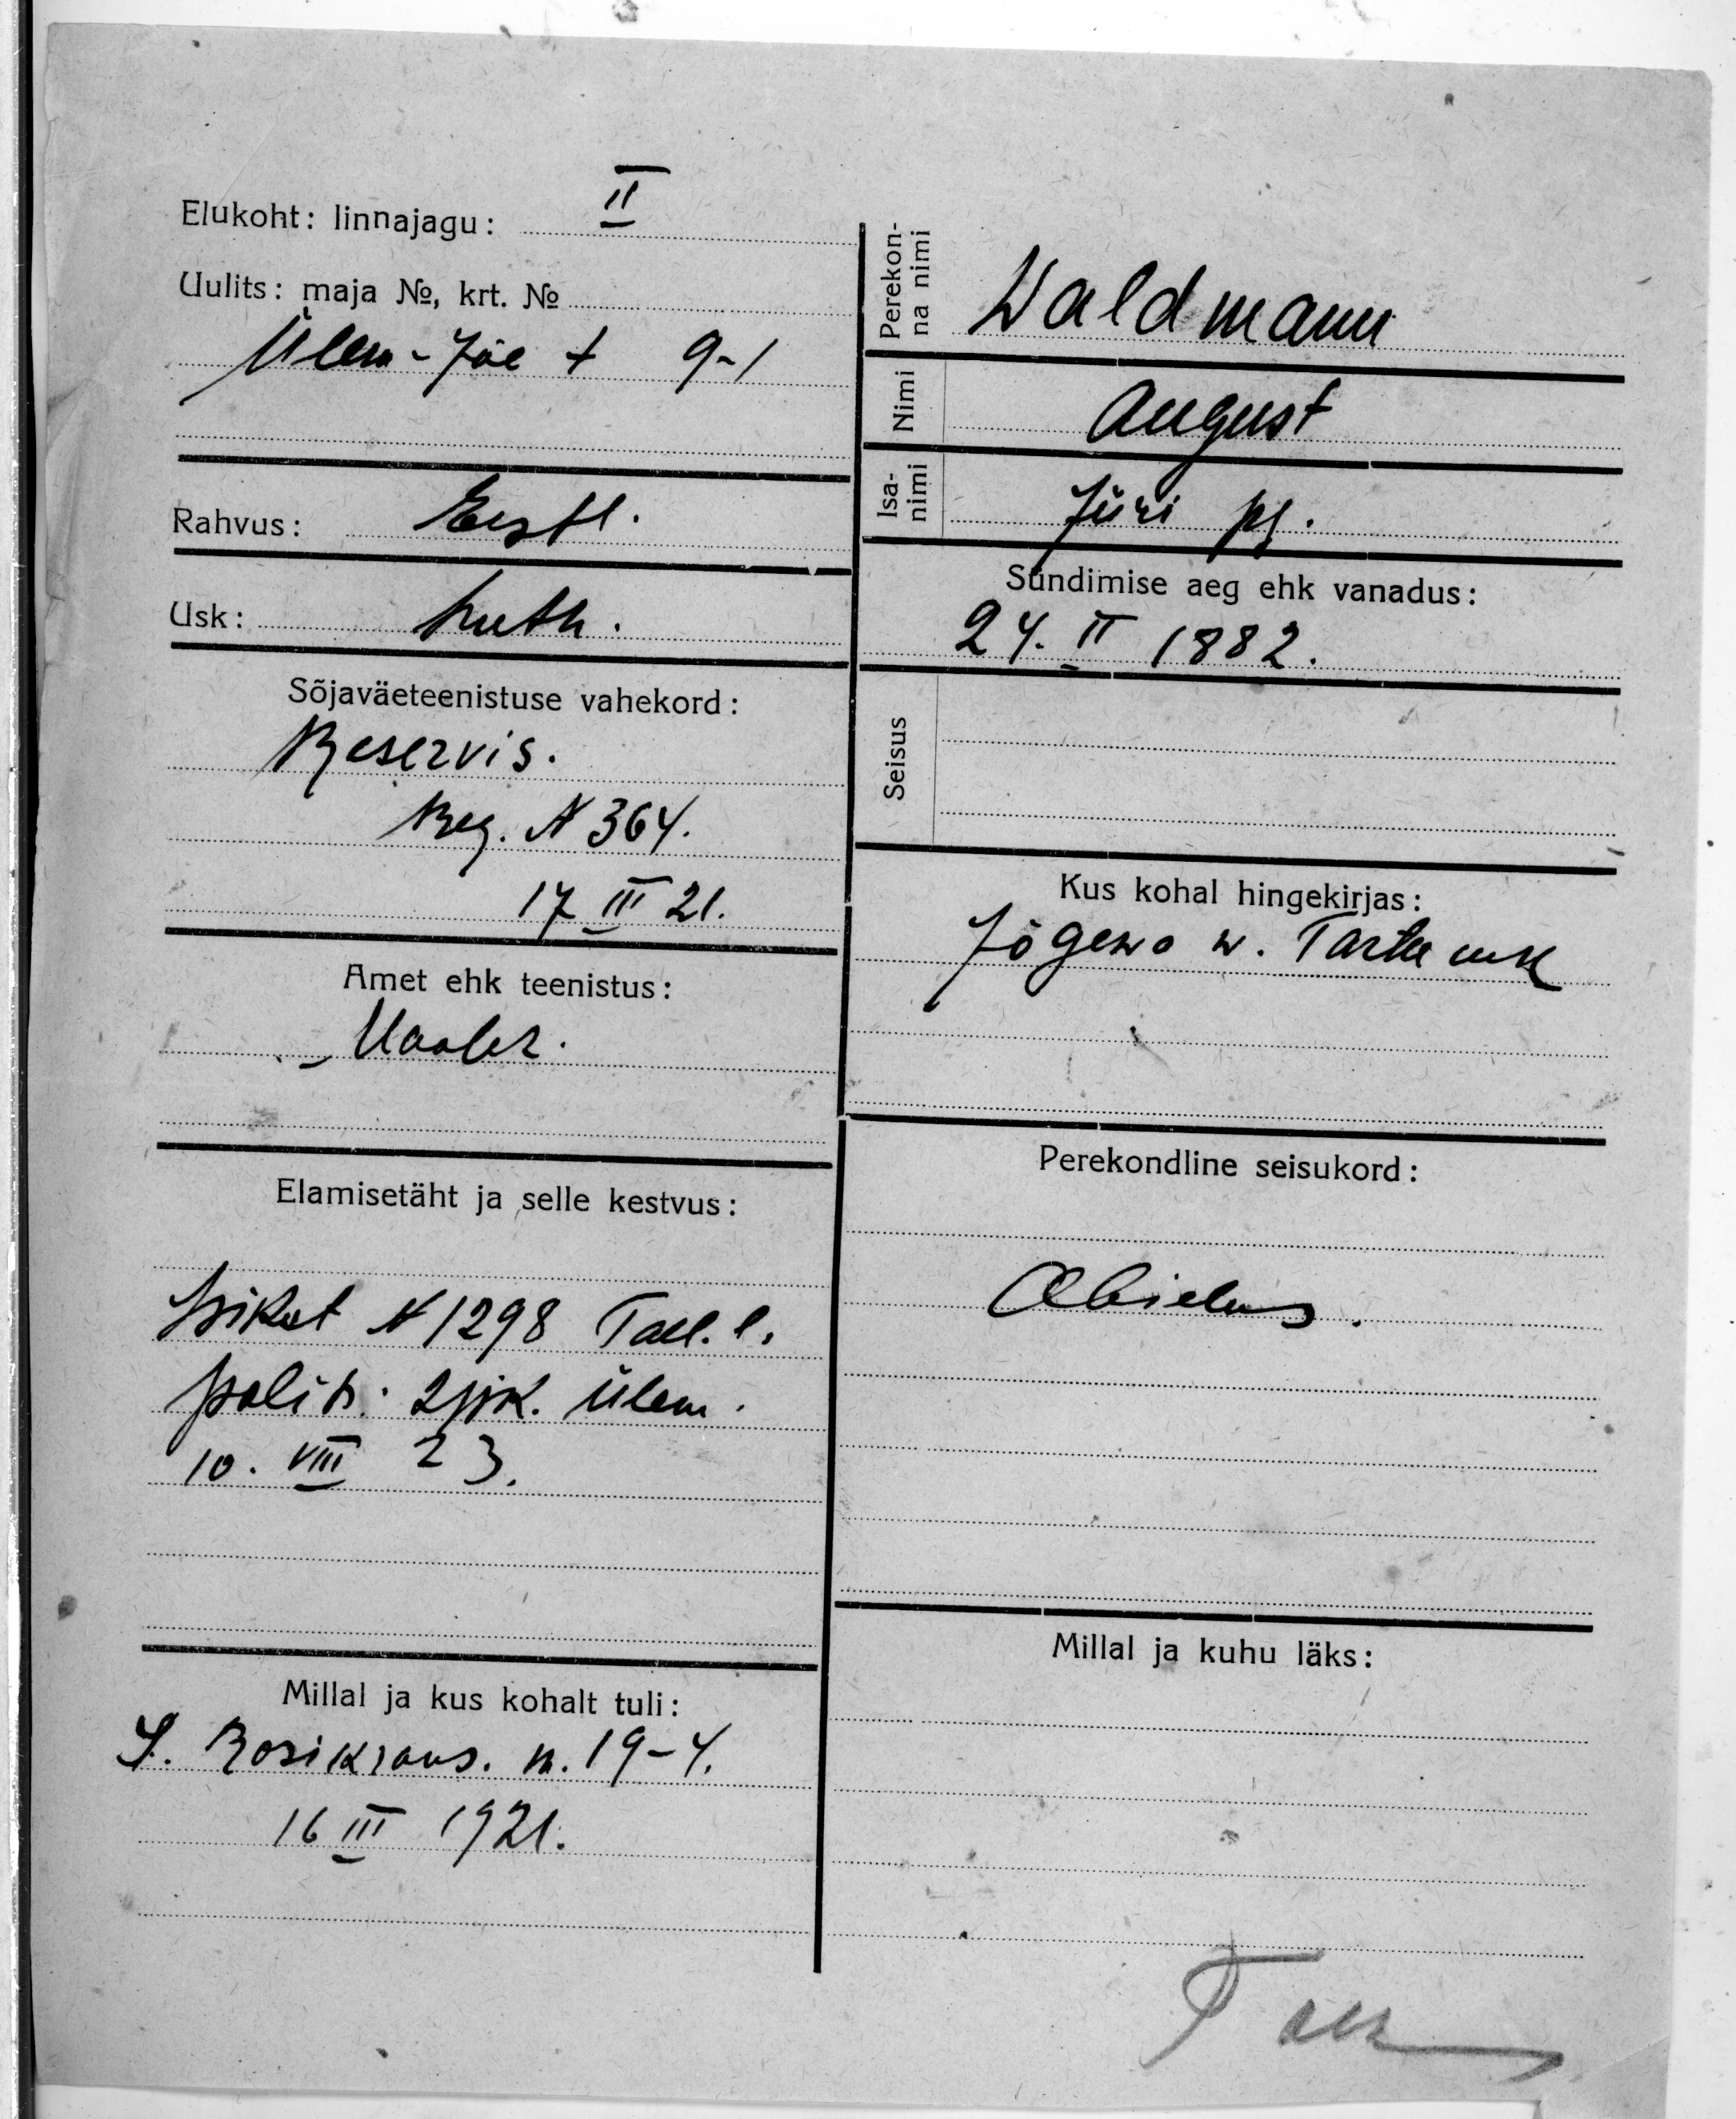 Elukoht: linnajagu: II
Uulits: maja №, krt. №
Ülem-Jõe t 9-1
Rahvus: Eestl.
Usk: Luth.
Sõjaväeteenistuse vahekord:
Reservis.
Reg. N 364.
17 III 21.
Amet ehk teenistus:
Maaler.
Elamisetäht ja selle kestvus:
Isikut N 1298 Tall. l.
polits. 2 jsk. ülem.
10. VIII 23.
Millal ja kus kohalt tuli:
S. Rosikrans. n. 19-4.
16 III 1921.
Perekon-
na nimi
Waldmann
Nimi
August
Isa-
nimi
Jüri pg.
Sündimise aeg ehk vanadus:
24. II 1882.
Seisus
Kus kohal hingekirjas:
Jõgewa w. Tartu mk
Perekondline seisukord:
Abielus.
Millal ja kuhu läks: